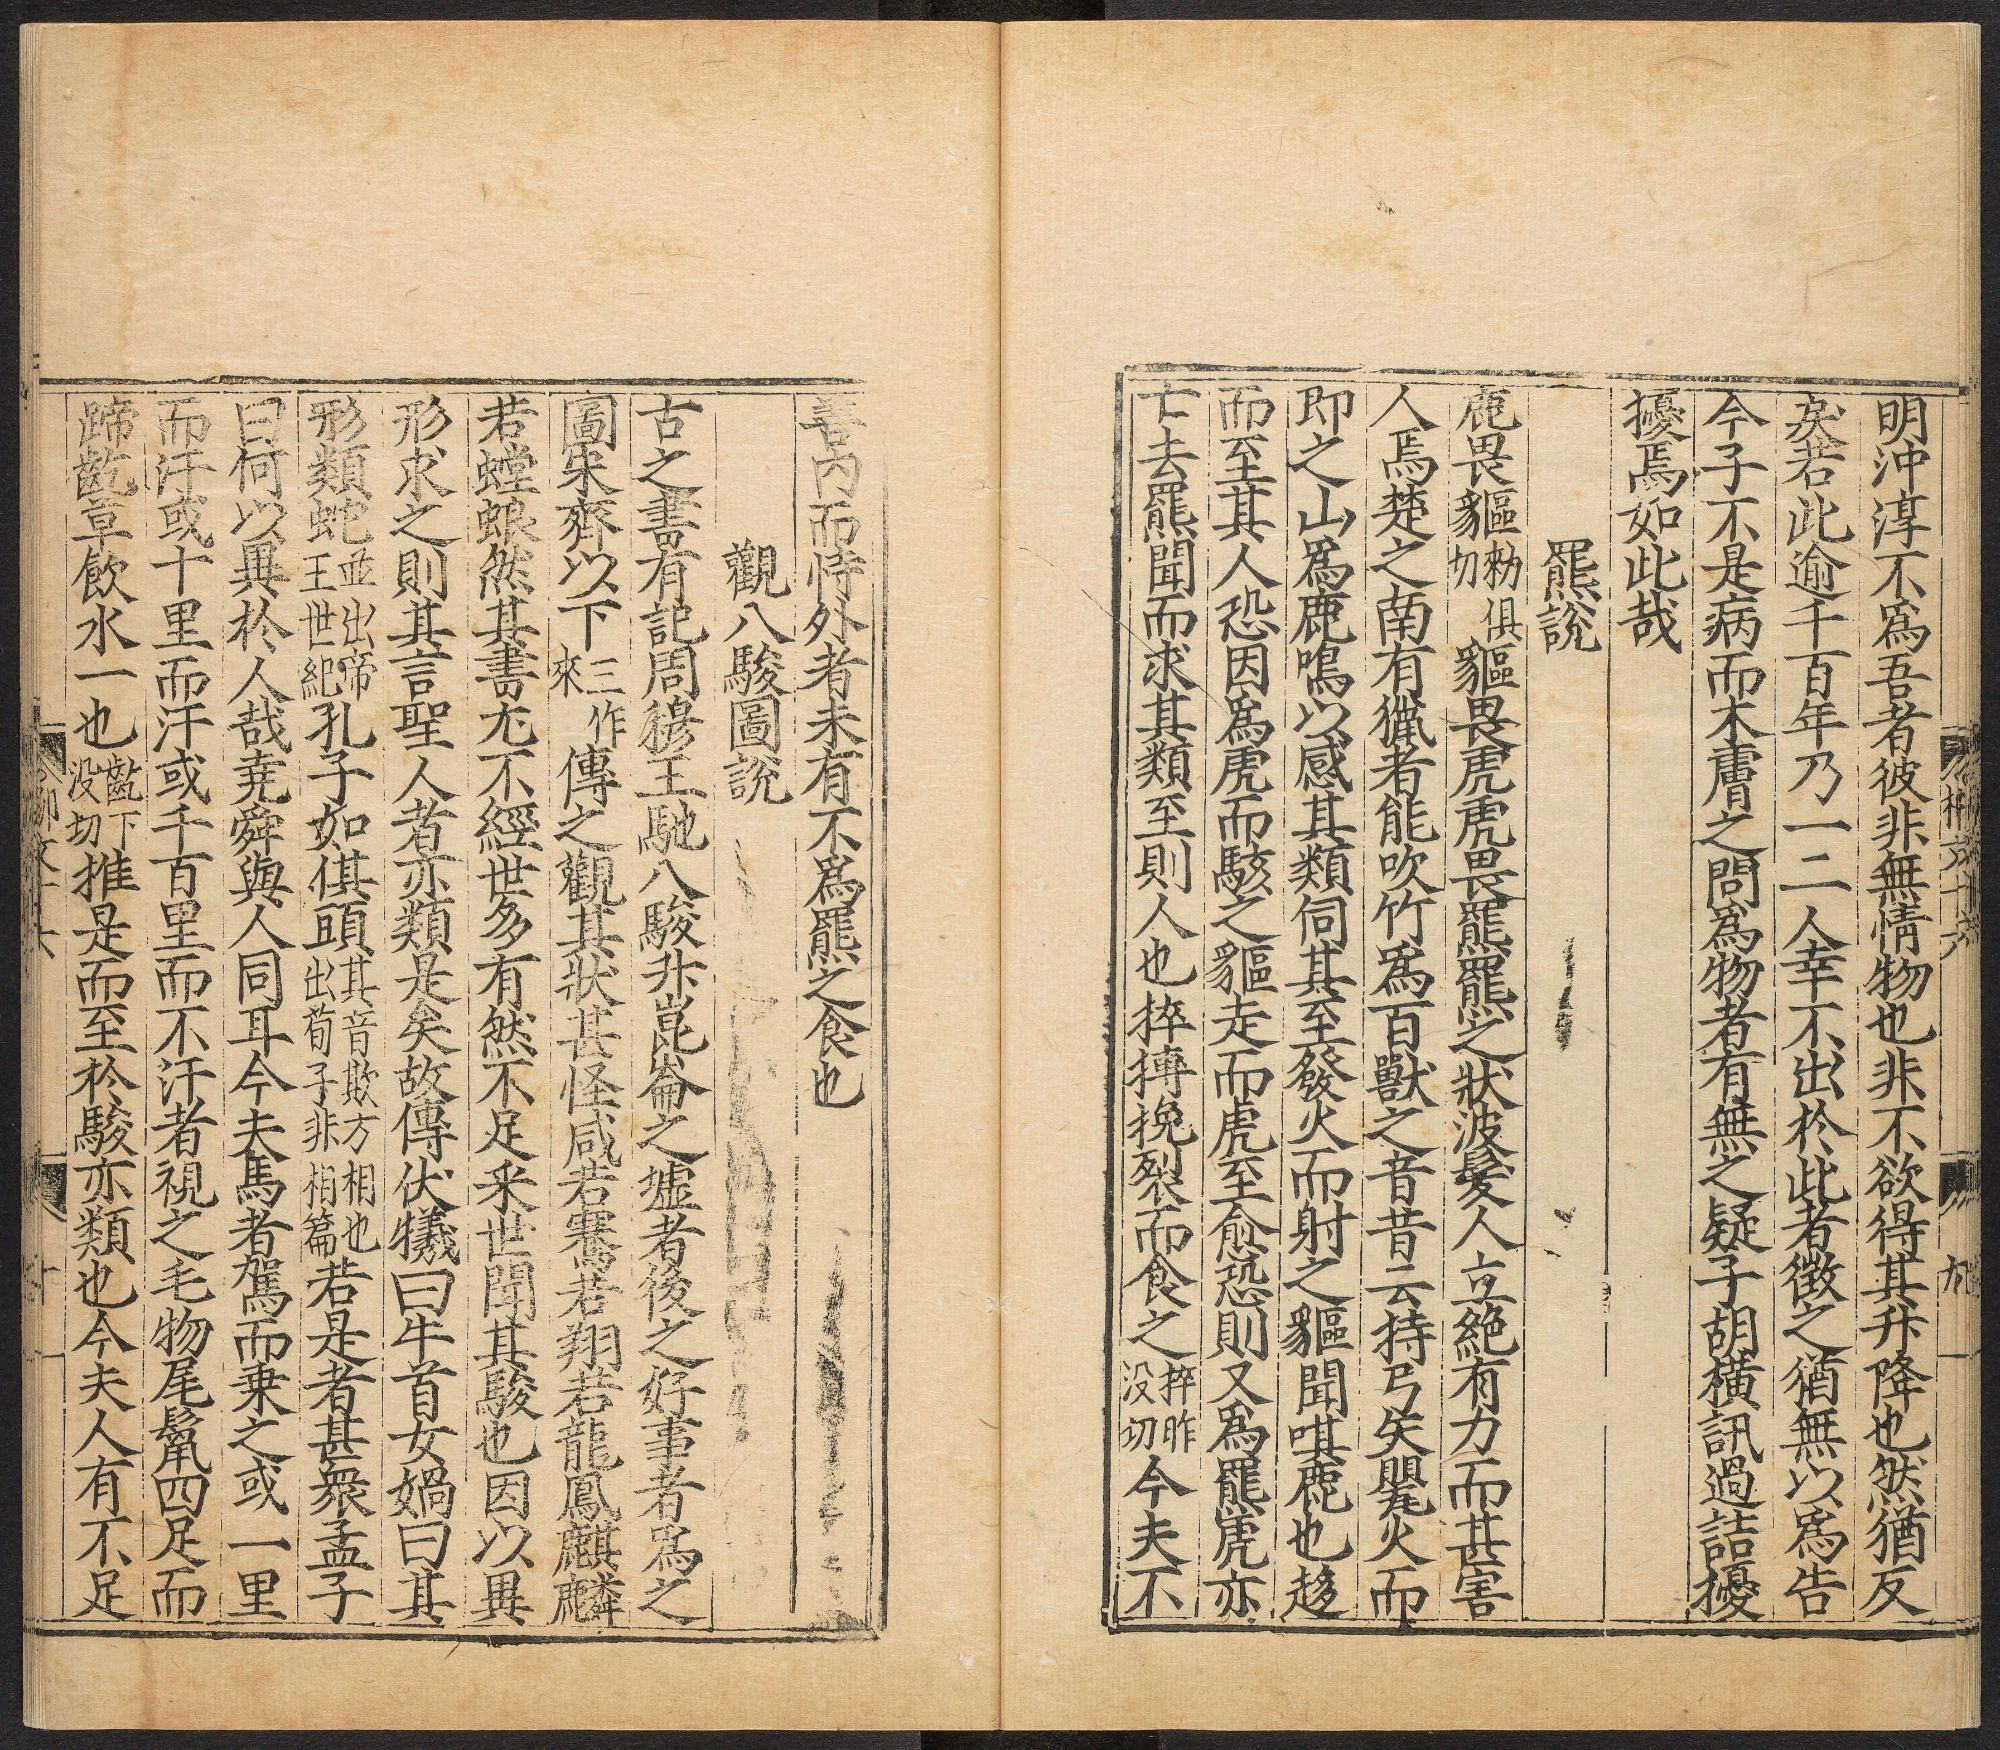 明沖淳不爲吾者彼非無情物也非不欲得其升降也然猶反
矣若此逾千百年乃一二人幸不出於此者徴之猶無以爲告
今子不是病而木膚之問爲物者有無之疑子胡横訊過詰擾
擾焉如此哉
羆説
鹿畏貙勑俱切貙畏虎虎畏羆羆之狀波髮人立絶有力而甚害
人焉楚之南有獵者能吹竹爲百獸之音昔云持弓矢罌火而
即之山爲鹿鳴以感其類伺其至發火而射之貙聞唭鹿也趍
而至其人恐因爲虎而駭之貙走而虎至愈恐則又爲羆虎亦
亡去羆聞而求其類至則人也捽搏挽裂而食之捽昨没切今夫不
善内而恃外者未有不爲羆之食也
觀八駿圖説
古之書有記周穆王馳八駿升崑崙之墟者後之好事者爲之
圖宋齊以下三作來傳之觀其狀甚怪咸若騫若翔若龍鳳麒麟
若螳蜋然其書尤不經世多有然不足采世聞其駿也因以異
形求之則其言聖人者亦類是矣故傳伏犧曰牛首女媧曰其
形類蛇並出帝王世紀孔子如倛頭其音欺方相也出荀子非相篇若是者甚衆孟子
曰何以異於人哉堯舜與人同耳今夫馬者駕而乗之或一里
而汗或十里而汗或千百里而不汗者視之毛物尾鬛四足而
蹄齕草飲水一也齕下没切推是而至於駿亦類也今夫人有不足
九